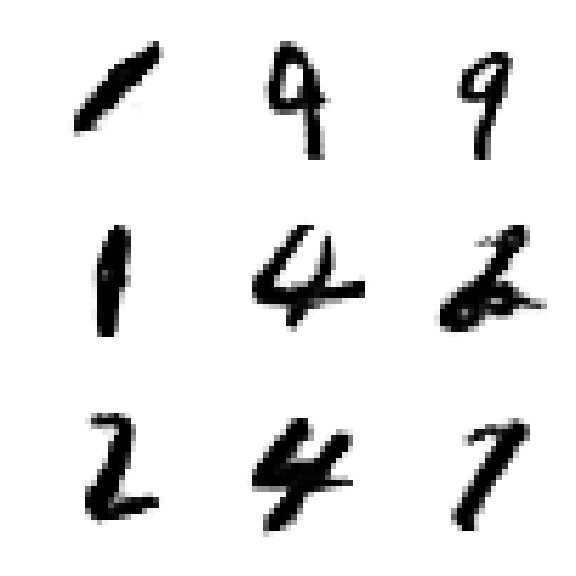 1 9 9
1 4 2
2 4 7